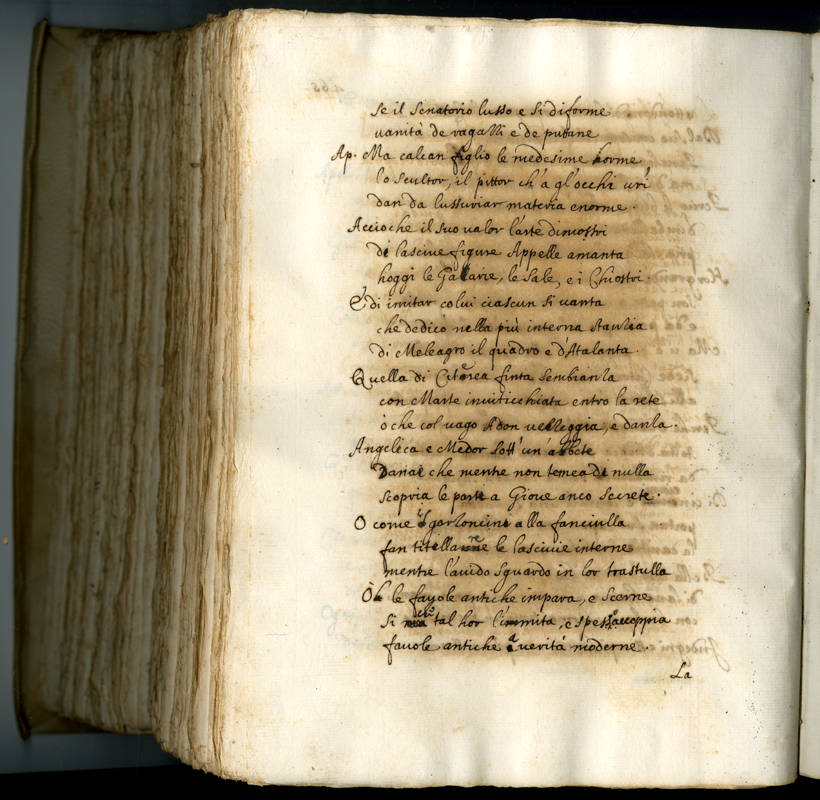 Se il Senatorio lusso e si diforme
vanità de vagassi e de putane
Ap. Ma calcan figlio le medesime horme
lo Scultor, il pittor ch'a gl'occhi
dan da lussuriar materia enorme.
Accioche il suo valor l'arte dimostri
di lascive figure Appelle amanta
hoggi le Gallarie, le Sale, e i Chiostri.
E di imitar colui ciascun si vanta
che dedicò nella più interna stantia
di Meleagro il quadro e d'Atalanta.
Quella di Citerea finta sembianza
con Marte inviticchiata entro la rete
ò che col vago Adon vesseggia, e danza.
Angelica e Medor sott'un' abbete
Danae che mentre non temea di nulla
scopria le parti a Giove anco secrete.
O come il garzoncino alla fanciulla
fan titellare le lascivie interne
mentre l'avido sguardo in lor trastulla
Oh le favole antiche impara, e scerne
si che tal hor l'immita, e spesso accoppia
favole antiche a verità moderne.
La